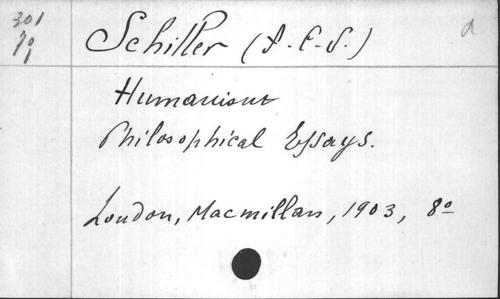 301
Schiller (F. C. S.)
Humanism
Philosophical Essays.
London, Macmillan, 1903, 8º